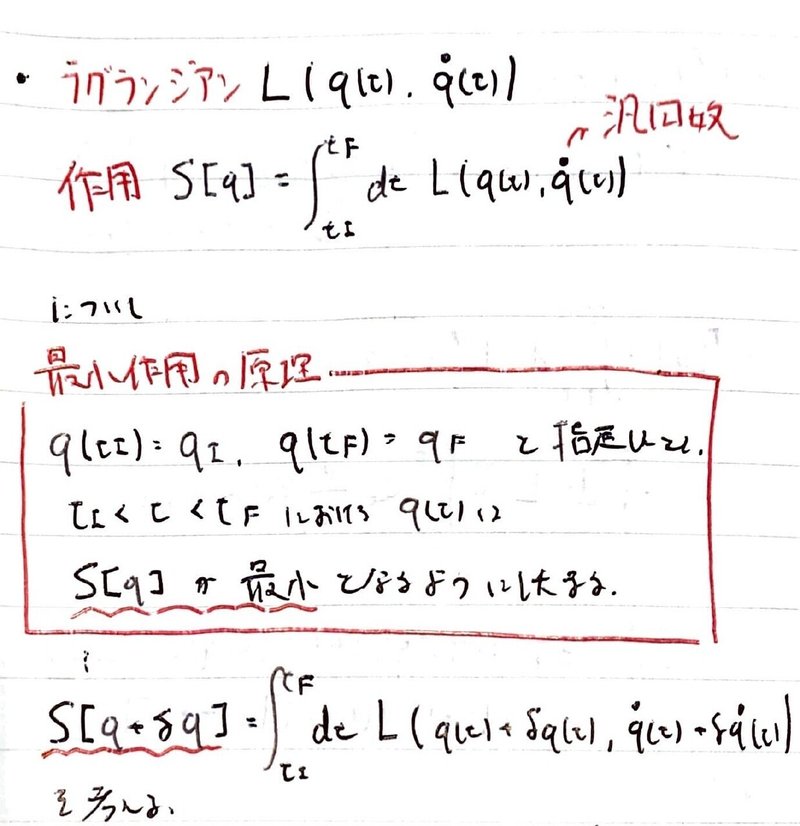 ・ラグランジアン L(q(t), q̇(t))
汎関数
作用 S[q] = ∫_{tI}^{tF} dt L(q(t), q̇(t))
について
最小作用の原理
q(tI) = qI, q(tF) = qF と指定した時,
tI < t < tF における q(t) は
S[q] が 最小 となるように決まる.
S[q + δq] = ∫_{tI}^{tF} dt L(q(t) + δq(t), q̇(t) + δq̇(t))
を考える.